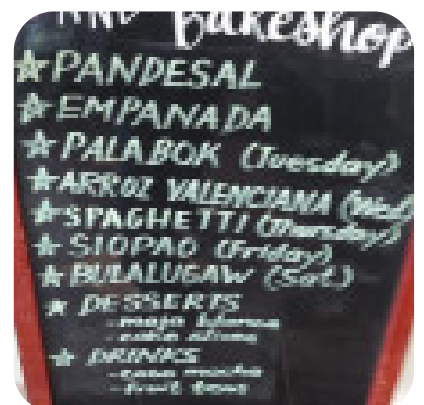 Bakeshop
PANDESAL
EMPANADA
PALABOK (Tuesday)
ARROZ VALENCIANA (Wed)
SPAGHETTI (Thursday)
SIOPAO (Friday)
BULALUGAW (Sat.)
DESSERTS
- maja blanca
DRINKS